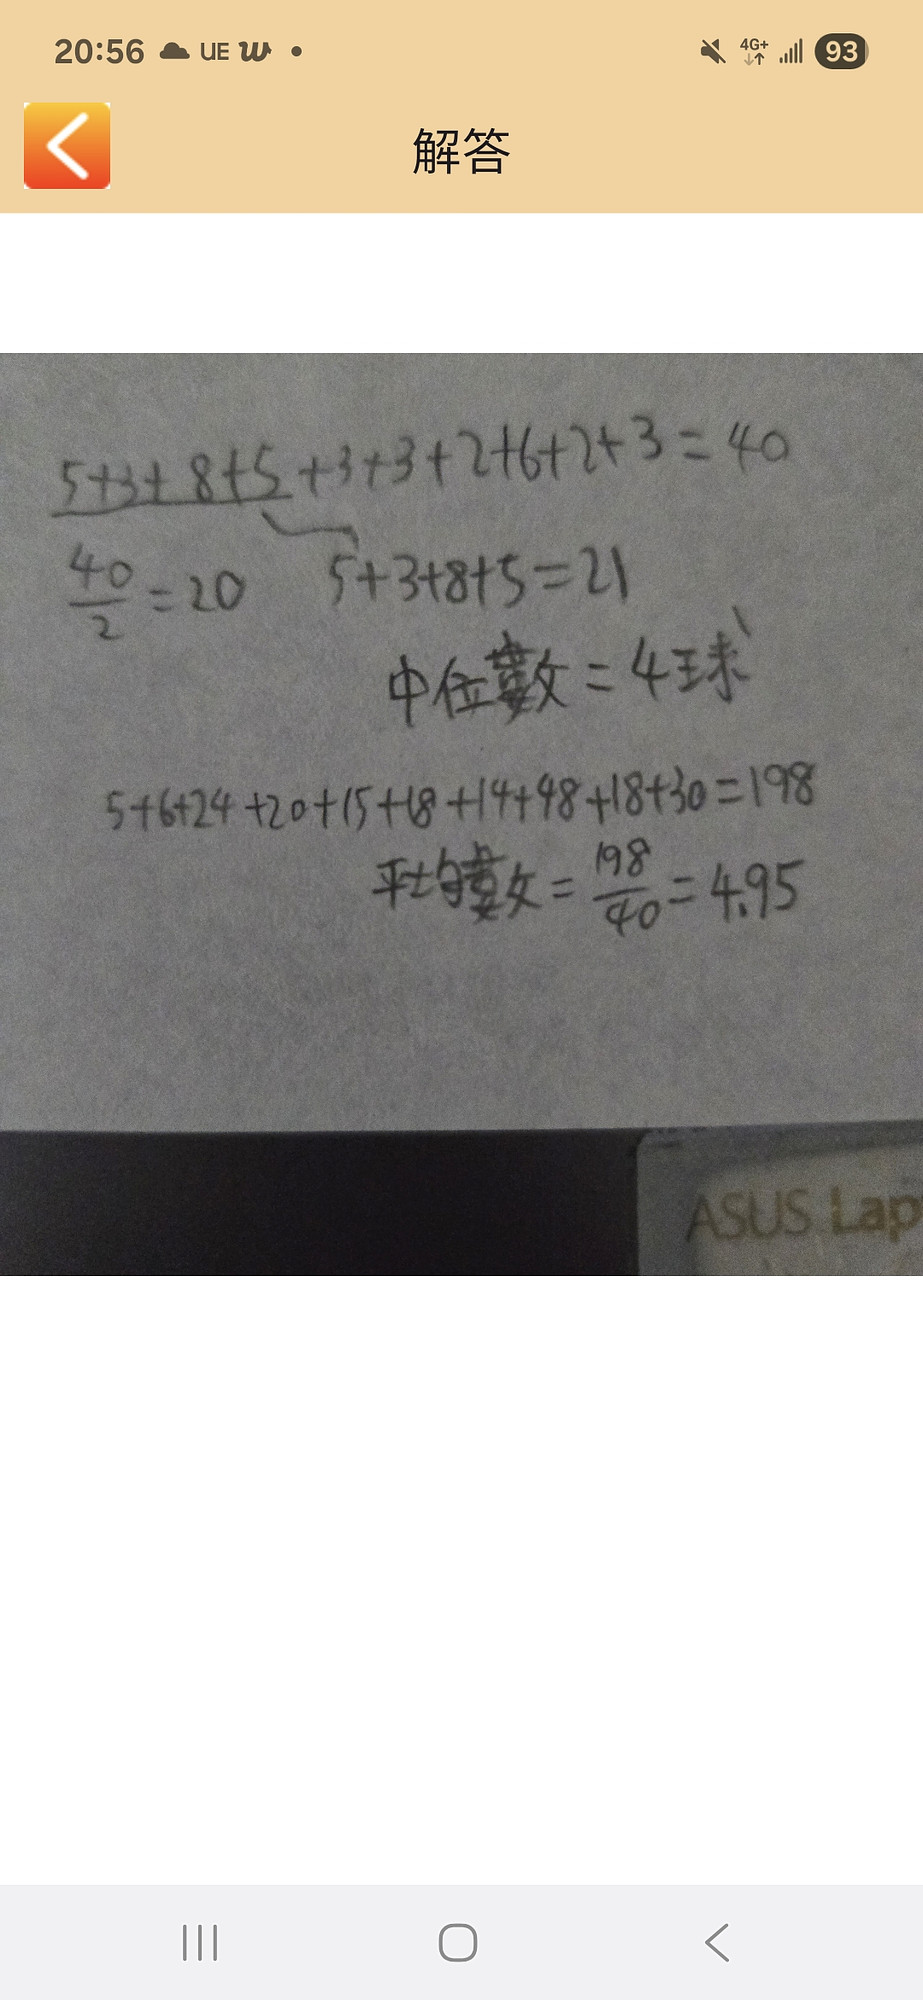 20:56 UE 4G+ 93
解答
5+3+8+5+3+3+2+6+2+3=40
40/2=20 5+3+8+5=21
中位數=4球
5+6+24+20+15+18+14+48+18+30=198
平均數=198/40=4.95
ASUS Lap